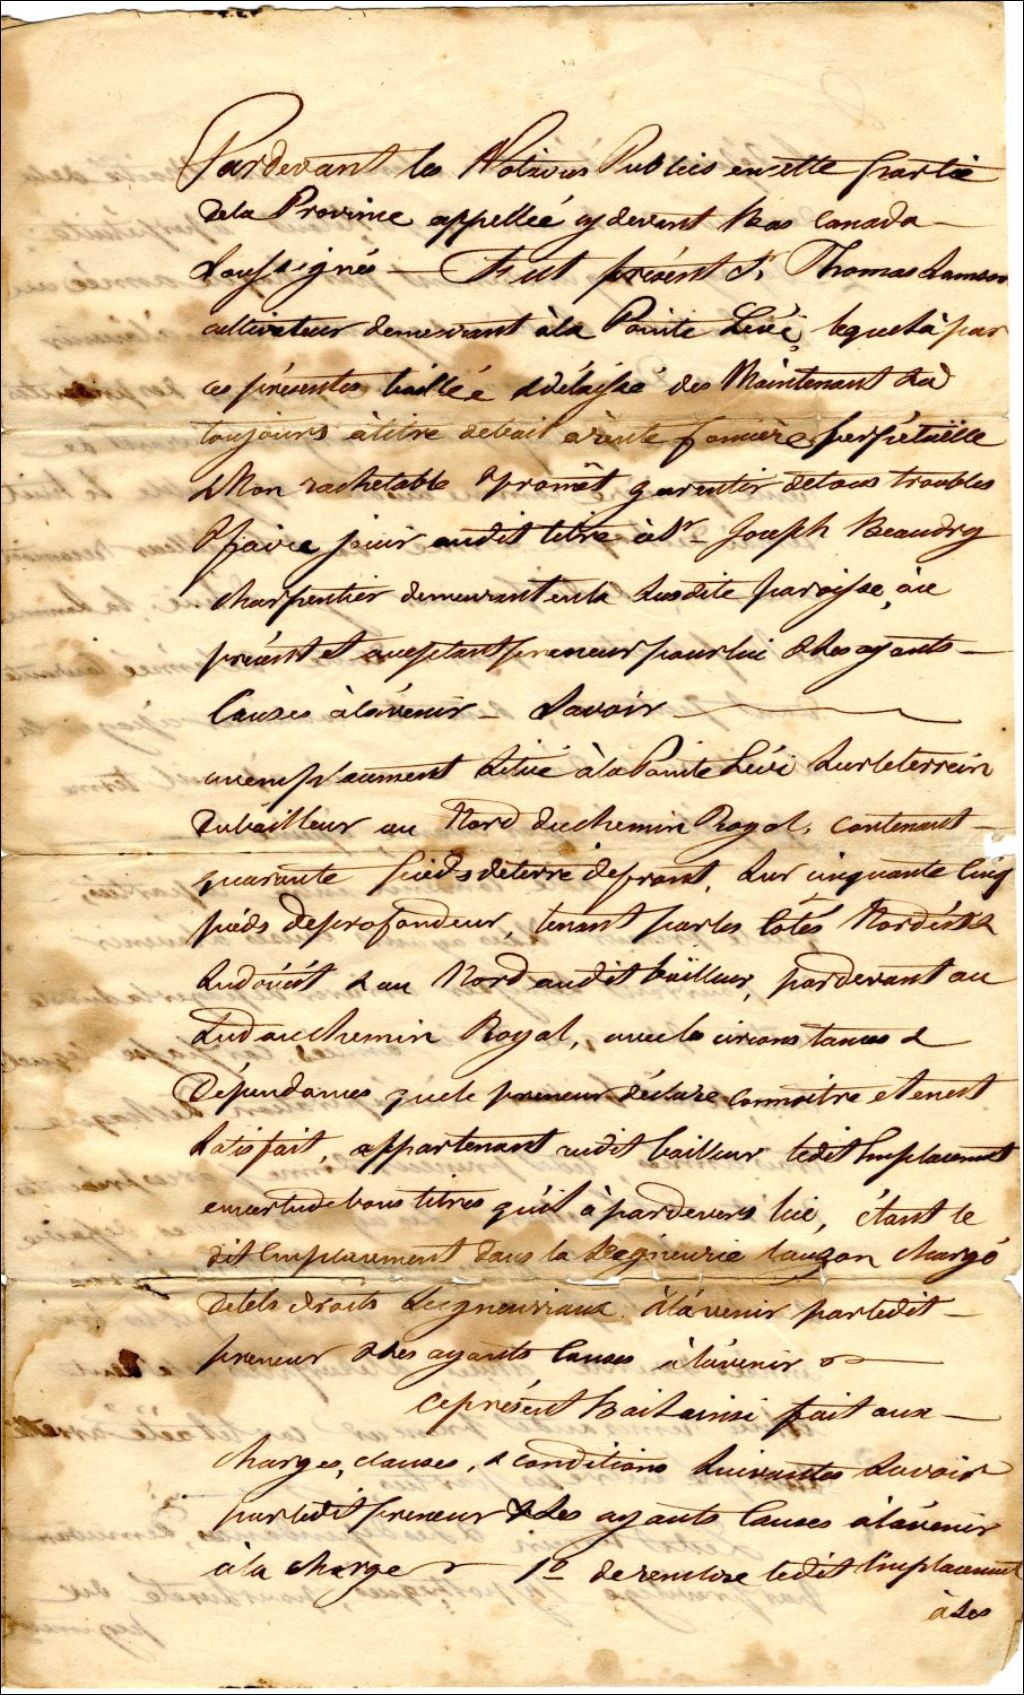 Pardevant les Notaires Publics en cette partie
dela Province appellée cy devant Bas Canada
Soussignés — Fut présent Sr. Thomas Samson
cultivateur demeurant àla Pointe Lévi, lequel à par
ces présentes baillé & délaissé dès Maintenant &à
toujours àtitre debail àrente foncière perpétuëlle
& Non rachetable & promêt garentir detous troubles
& faire jouir audit titre à Sr. Joseph Beaudry
charpentier demeurant en la Susdite paroisse, àce
présent et acceptant preneur pour lui & Ses ayants —
Causes àlàvenir — Savoir
un emplacement Situé àla Pointe Lévi Sur le terrein
du bailleur au Nord du chemin Royal, contenant —
quarante pieds deterre defront, Sur cinquante Cinq
pieds deprofondeur, tenant par les Côtés Nordést &
Sudoüést & au Nord audit bailleur, pardevant au
Sud au chemin Royal, avec les circonstances &
Dépendances que le preneur déclare connoitre et enest
Satisfait, appartenant audit bailleur ledit Emplacement
en vertu de bons titres qu'il à pardevers lui, étant le
dit Emplacement dans la Seigneurie Lauzon chargé
de tels droits Seigneuriaux àlàvenir par ledit —
preneur & Ses ayants Causes àlàvenir —
Ce présent Bail ainsi fait aux —
charges, clauses, & conditions Suivantes Savoir
par ledit preneur & Ses ayants Causes àlàvenir
àla charge — 1º de renclore ledit Emplacement
à Ses